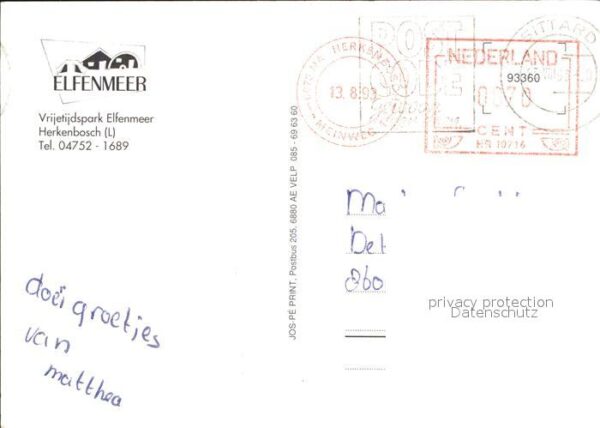 ELFENMEER
Vrijetijdspark Elfenmeer
Herkenbosch (L)
Tel. 04752 - 1689
doei groetjes
van
matthea
JOS-PE PRINT, Postbus 205, 6880 AE VELP 085 - 69 63 60
HERKENBOSCH
13.8.93
POST
SITTARD
NEDERLAND
93360
0070
CENT
HR 10716
Ma
Det
privacy protection
Datenschutz